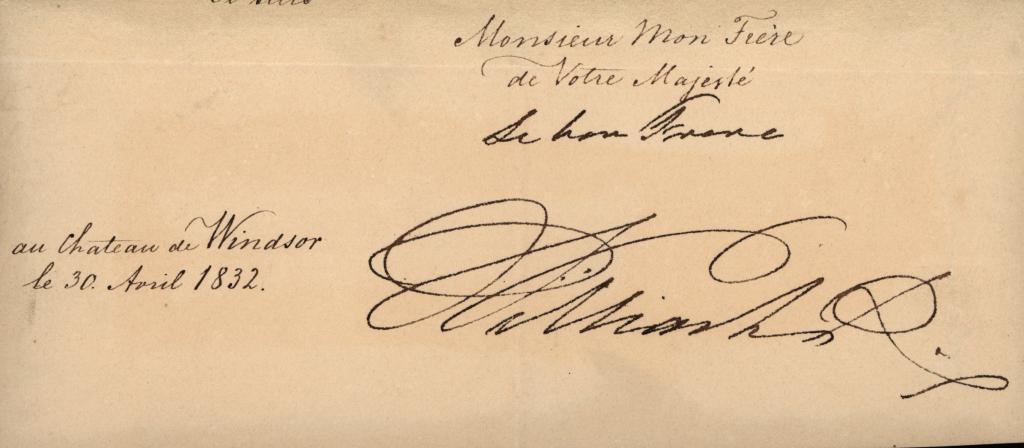 Monsieur Mon Frère
de Votre Majesté
Le bon Frere
au Chateau de Windsor
le 30. Avril 1832.
William R.